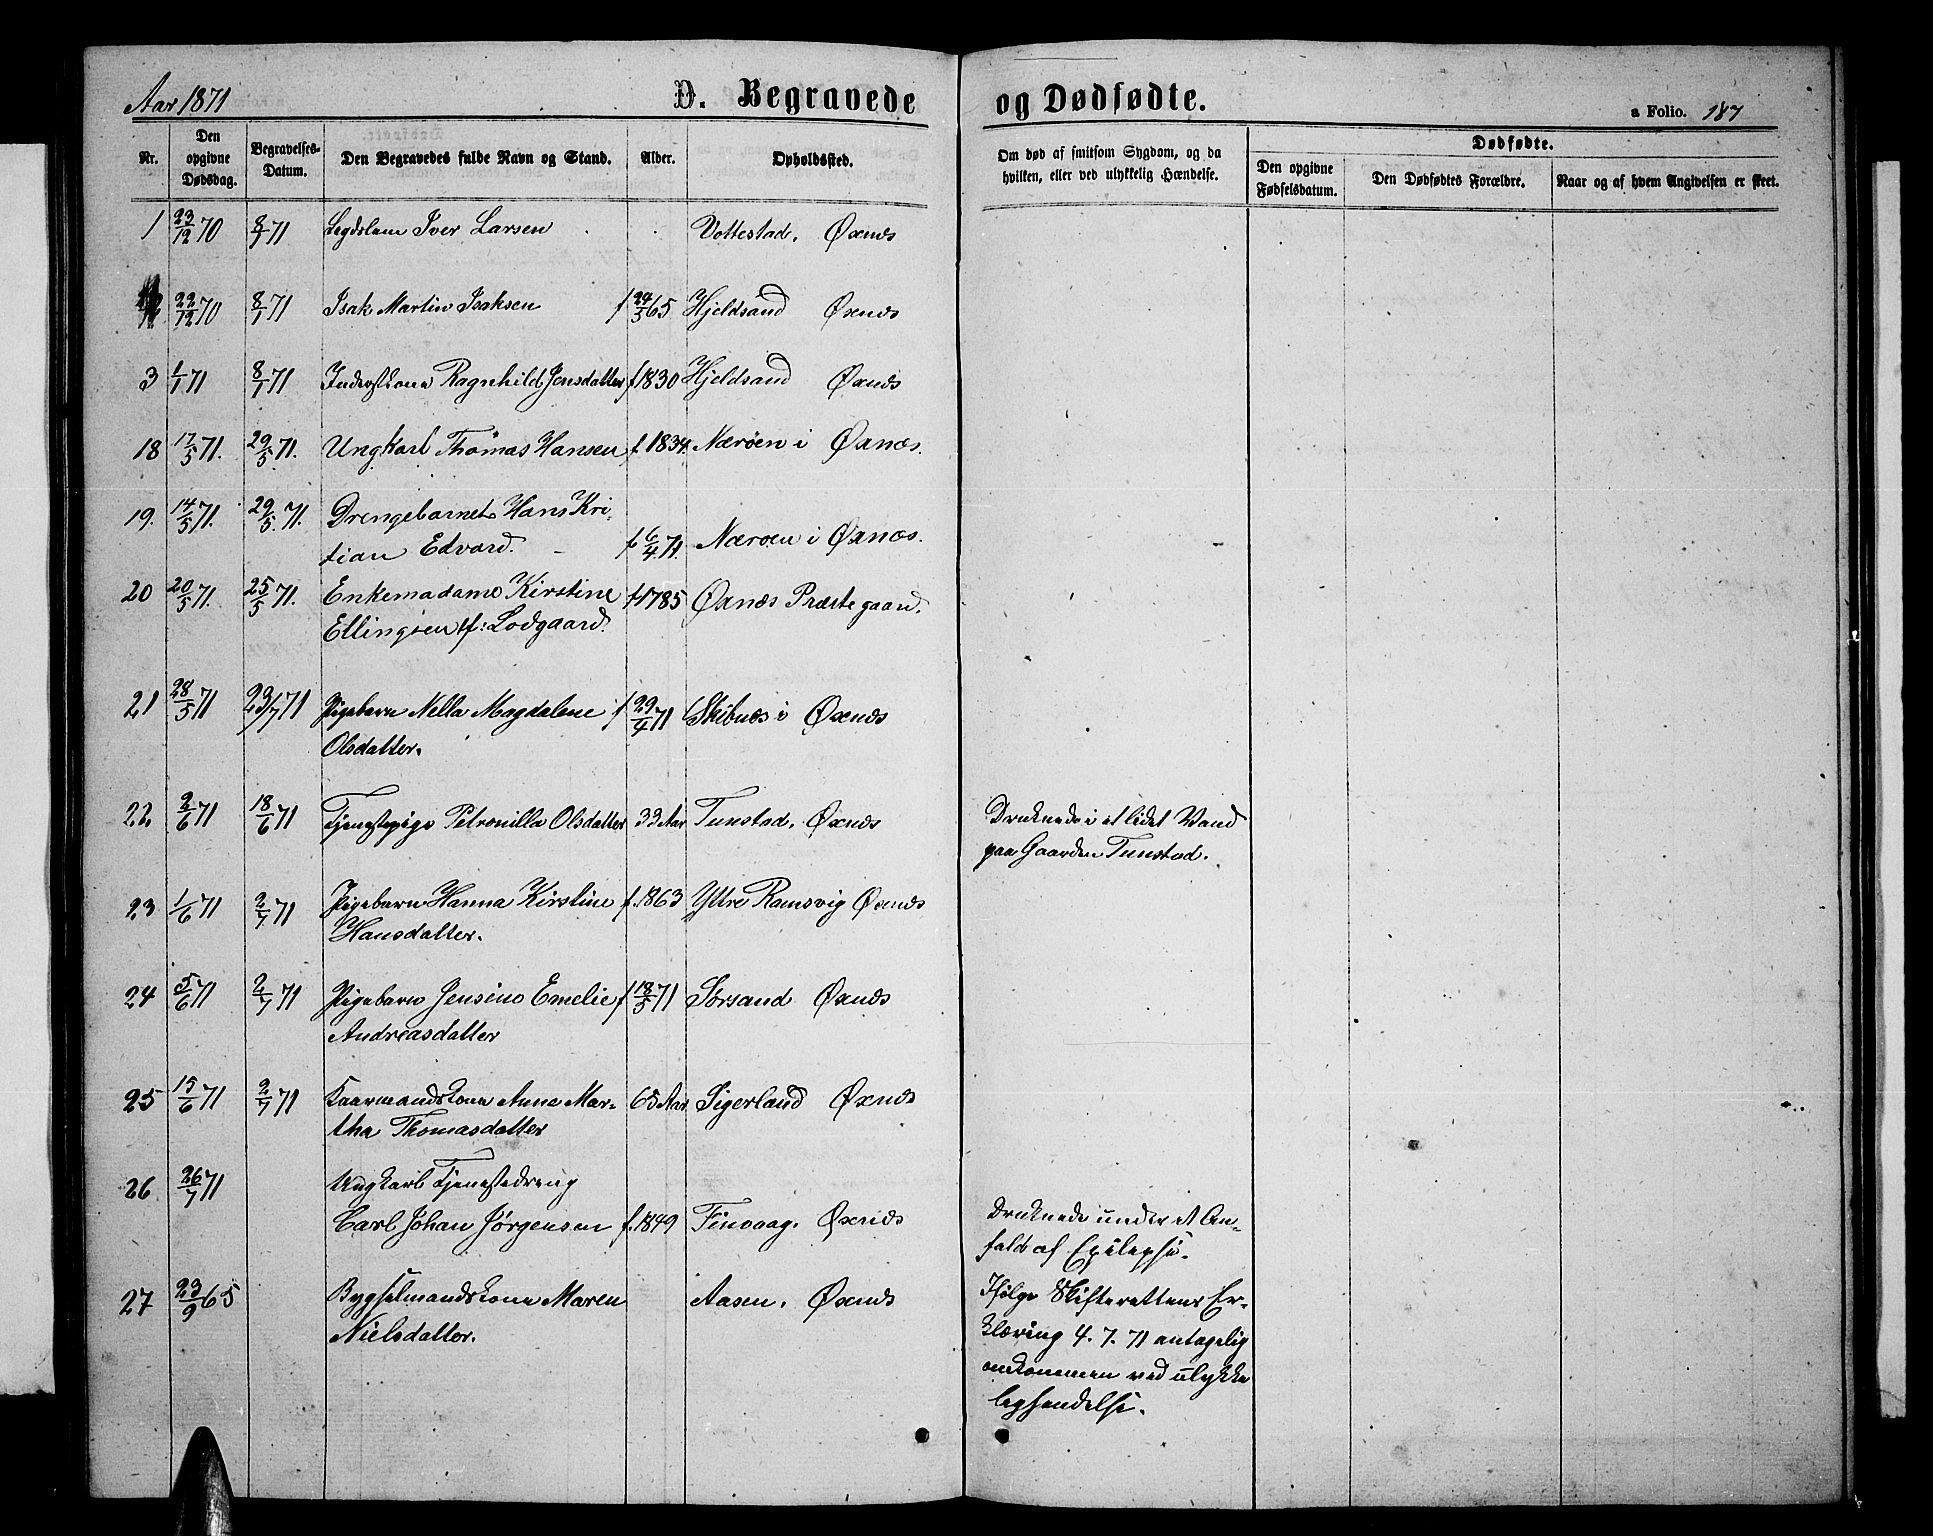 Aar 1871
D. Begravede og Dødfødte.
a Folio. 187
Nr.
Den opgivne Dødsdag.
Begravelses-Datum.
Den Begravedes fulde Navn og Stand.
Alder.
Opholdssted.
Om død af smitsom Sygdom, og da hvilken, eller ved ulykkelig Hændelse.
Dødfødte.
Den opgivne Fødselsdatum.
Den Dødfødtes Forældre.
Naar og af hvem Angivelsen er skeet.
1 23/12 70 8/1 71 Legdslem Iver Larsen Vottestad. Øxnæs
22/12 70 8/1 71 Isak Martin Isaksen f 24/3 65 Hjeldsand Øxnæs
3 1/1 71 8/1 71 Inderstkone Ragnhild Jensdatter f 1830 Hjeldsand Øxnæs
18 17/5 71. 29/5 71. Ungkarl Thomas Hansen f. 1834. Nærøen i Øxnæs.
19. 14/5 71. 29/5. 71. Drengebarnet Hans Kri-
tian Edvard. f 6/4. 71. Nærøen i Øxnæs.
20 20/5 71. 25/5 71. Enkemadame Kirstine f 1785 Øxnæs Præstegaard.
Ellingsen f: Lodgaard.
21 28/5 71 23/7 71 Pigebarn Nella Magdalene f 29/4 71 Skibnæs i Øxnæs
Olsdatter.
22. 2/6 71 18/6 71 Tjenestepige Petronilla Olsdatter 33 Aar Tunstad. Øxnæs Druknede i et lidet Vand
paa Gaarden Tunstad.
23 1/6 71 2/7 71 Pigebarn Hanna Kirstine f. 1863 Yttre Ramsvig Øxnæs
Hansdatter.
24 5/6 71 2/7 71 Pigebarn Jensine Emelie f 18/5 71 Sørsand Øxnæs
Andreasdatter
25 15/6 71 2/7 71 Kaarmandskone Anne Mar- 65 Aar Sigerland Øxnæs
tha Thomasdatter
26 26/7 71 Ungkarl Tjenestedreng
Carl Johan Jørgensen f. 1849 Finvaag. Øxnæs Druknede under et An-
fald af Epilepsi.
27 23/9 65 Bygselmandskone Maren Aasen. Øxnæs Ifølge Skifterettens Er-
Nielsdatter. klæring 4. 7. 71 antagelig
omkommen ved ulykke
lig hændelse.